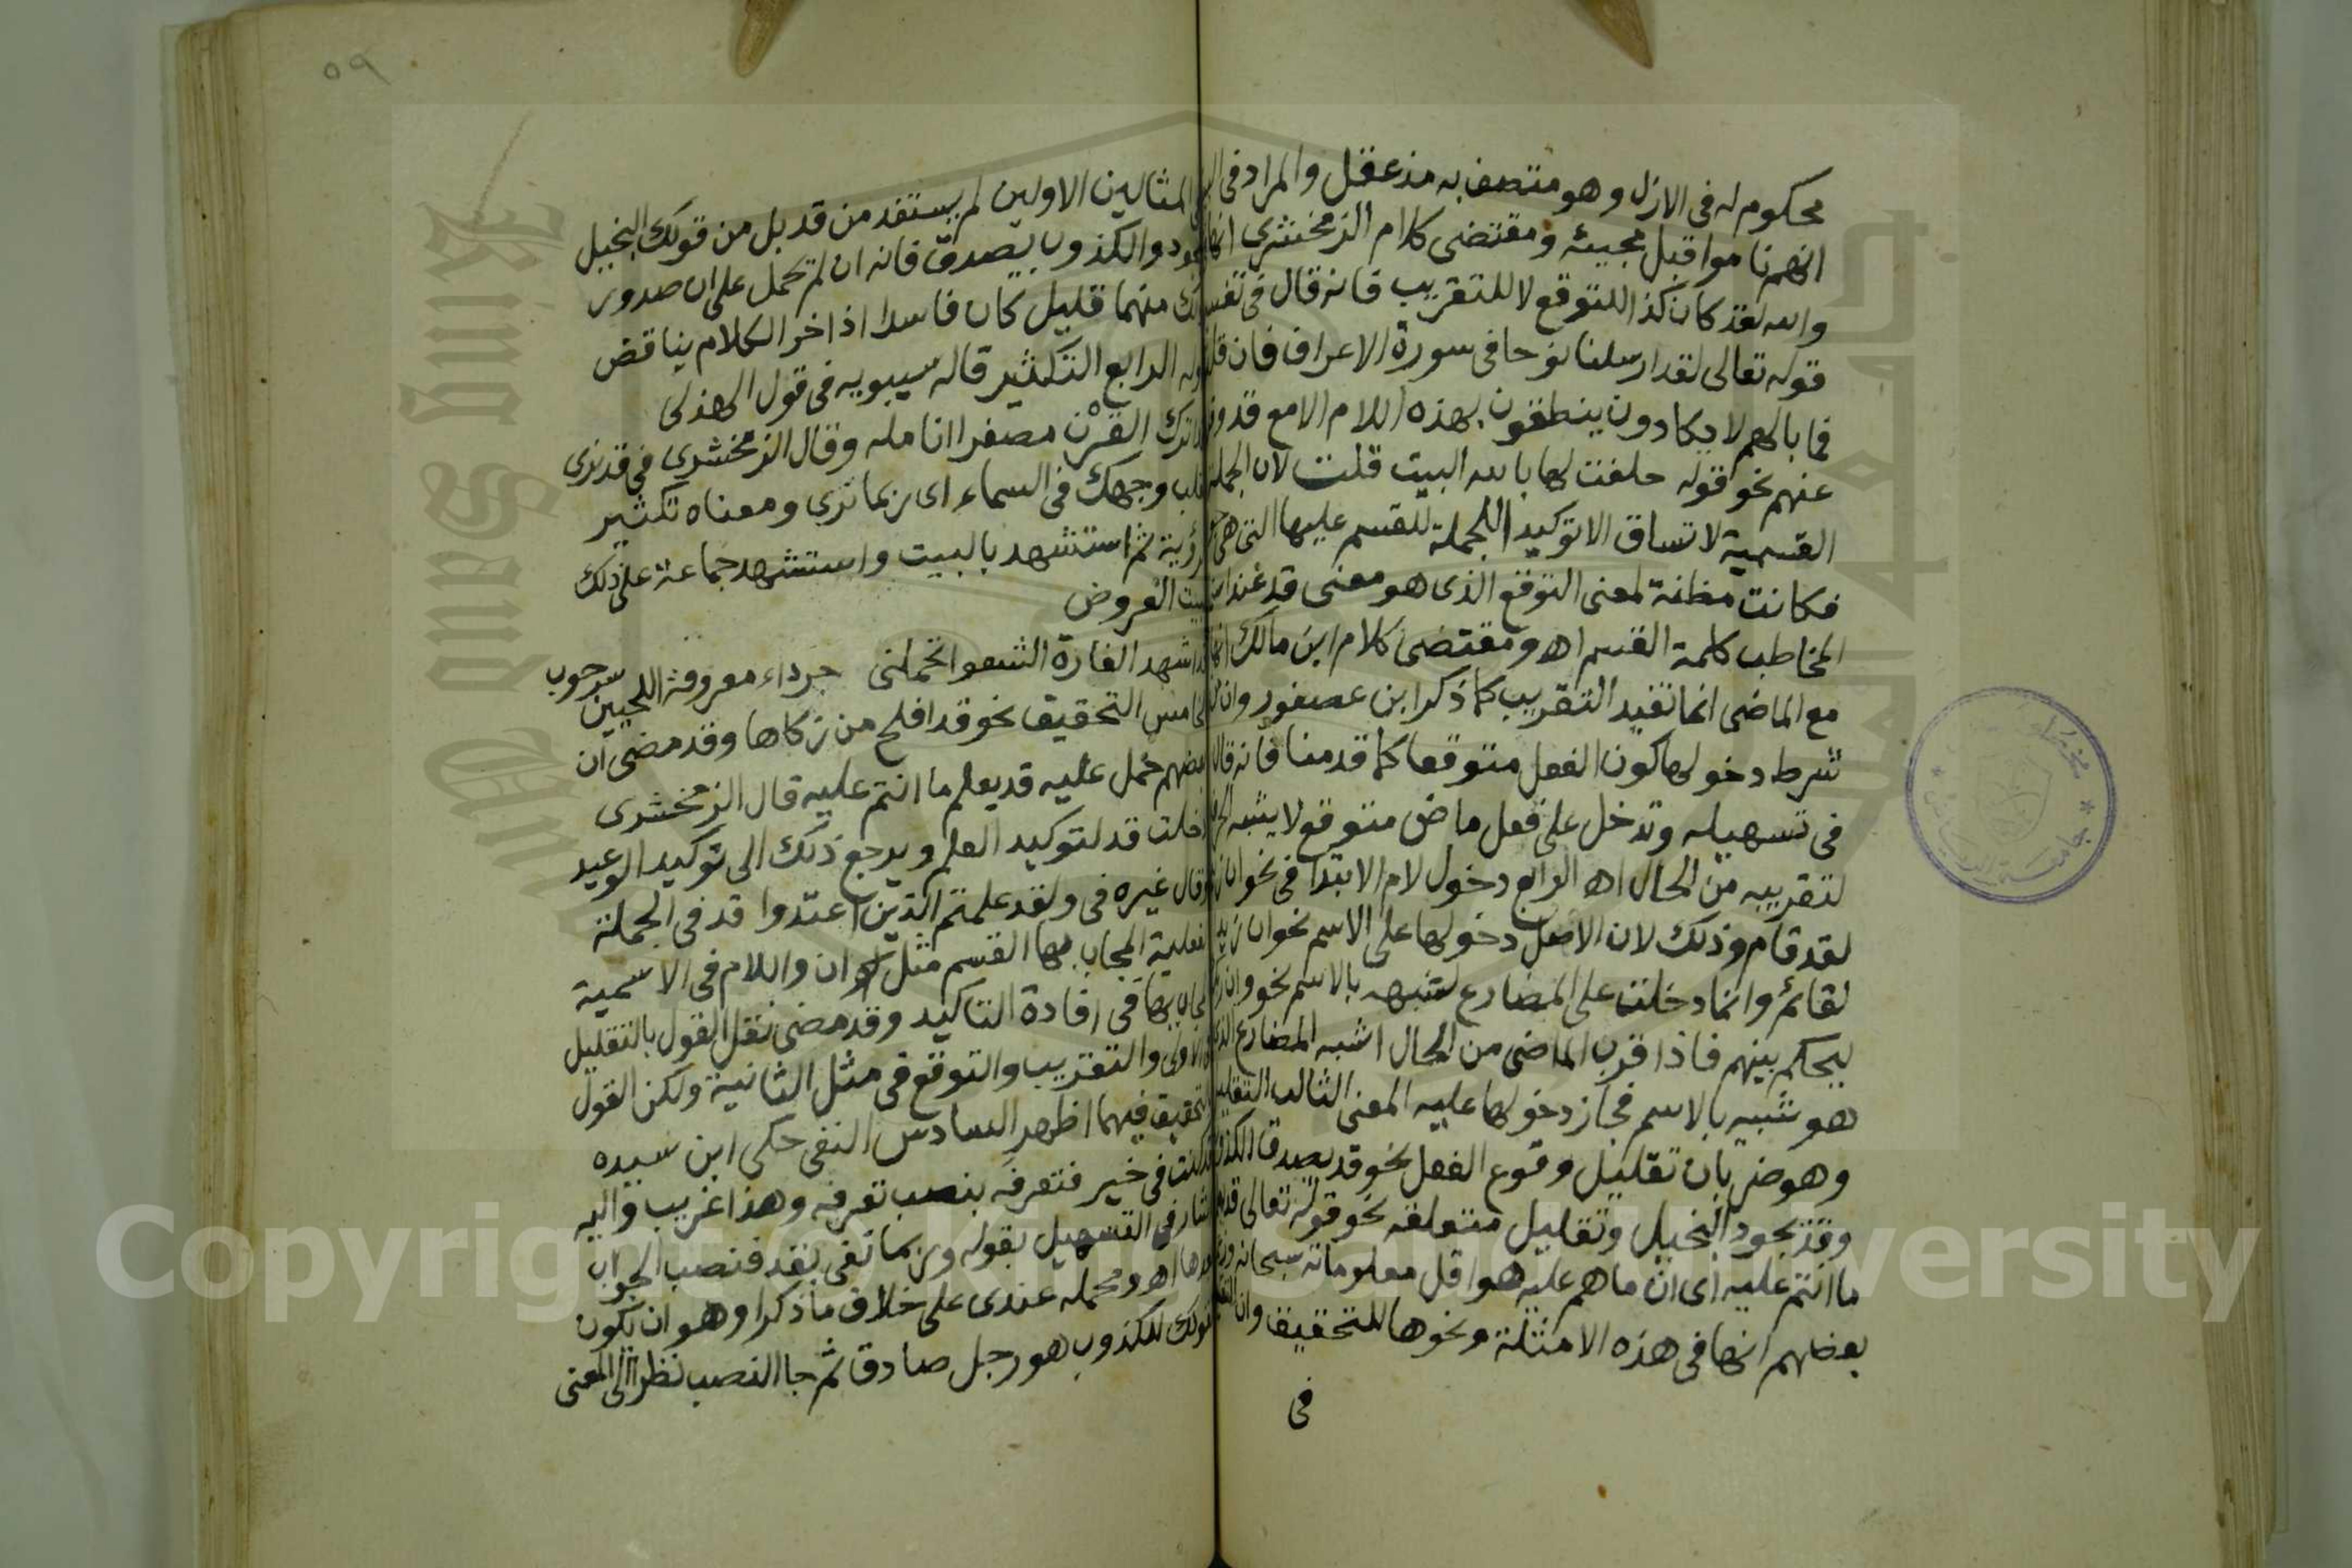 محكوم له فى الازل وهو متصف به مذ عقل والمراد فى
انهم ناموا قبل مجيئه ومقتضى كلام الزمخشري انها
والله لقد كان كذا للتوقع لا للتقريب فانه قال فى تفسير
قوله تعالى لقد ارسلنا نوحا فى سورة الاعراف فان قلت
فما بالهم لا يكادون ينطقون بهذه اللام الا مع قد وقل
عنهم نحو قوله حلفت لها بالله البيت قلت لان الجملة
القسمية لا تساق الا توكيدا للجملة للقسم عليها التى هى
فكانت مظنة لمعنى التوقع الذى هو معنى قد عند
المخاطب كلمة القسم اه ومقتضى كلام ابن مالك انها
مع الماضى انما تفيد التقريب كما ذكرا بن عصفور وان
شرط دخولها كون الفعل متوقعا كما قدمنا فانه قال
فى تسهيله وتدخل على فعل ماض متوقع لا يشبه
لتقريبه من الحال اه الرابع دخول لام الابتدا فى نحو ان
لقد قام وذلك لان الاصل دخولها على الاسم نحو ان زيدا
لقائم وانما دخلت على المضارع لشبهه بالاسم نحو وان ربك
ليحكم بينهم فاذا قرب الماضى من الحال اشبه المضارع الذى
هو شبيه بالاسم فجاز دخولها عليه المعنى الثالث التقليل
وهو ضربان تقليل وقوع الفعل نحو قد يصدق الكذوب
وقد يجود البخيل وتقليل متعلقه نحو قوله تعالى قد
ما انتم عليه اى ان ما هم عليه هو اقل معلوماته سبحانه
بعضهم انها فى هذه الامثلة ونحوها للتحقيق وان
فى
٥٩
المثالين الاولين لم يستفد من قد بل من قولك البخيل
يجود والكذوب يصدق فانه ان لم يحمل على ان صدور
ذلك منهما قليل كان فاسدا اذ اخر الكلام يناقض
اوله الرابع التكثير قاله سيبويه فى قول الهذلى
قد اترك القرن مصفرا انامله وقال الزمخشرى فى قد نرى
تقلب وجهك فى السماء اى ربما نرى ومعناه تكثير
الرؤية ثم استشهد بالبيت واستشهد جماعة على ذلك
ببيت العروض
قد اشهد الغارة الشعوا تحملنى جرداء معروقة اللحيين سرحوب
الخامس التحقيق نحو قد افلح من زكاها وقد مضى ان
بعضهم حمل عليه قد يعلم ما انتم عليه قال الزمخشرى
دخلت قد لتوكيد العلم ويرجع ذلك الى توكيد الوعيد
وقال غيره فى ولقد علمتم الذين اعتدوا قد فى الجملة
الفعلية المجاب بها القسم مثل ان واللام فى الاسمية
المجاب بها فى افادة التاكيد وقد مضى نقل القول بالتقليل
فى الاولى والتقريب والتوقع فى مثل الثانية ولكن القول
بالتحقيق فيهما اظهر السادس النفى حكى ابن سيده
قد كنت فى خير فتعرفه بنصب تعرفه وهذا غريب واليه
اشار فى التسهيل بقوله وربما نفى بقد فنصب الجواب
بعدها اه ومحمله عندى على خلاف ما ذكرا وهو ان يكون
كقولك للكذوب هو رجل صادق ثم جا النصب نظرا الى المعنى